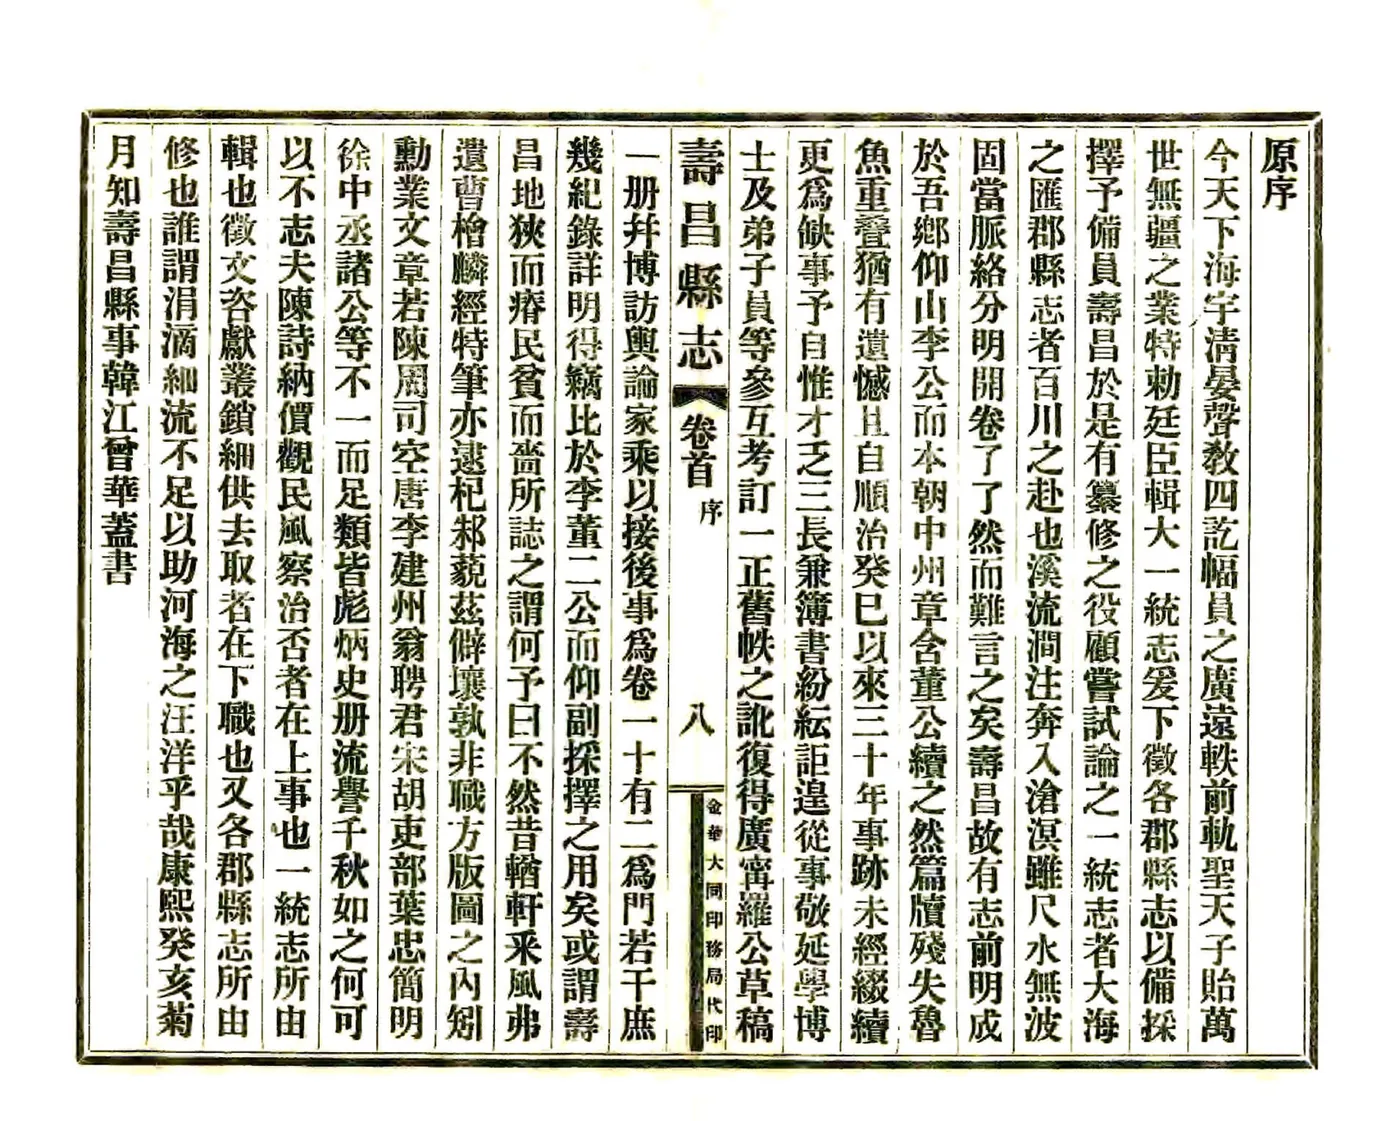 原序
今天下海宇淸晏聲敎四訖幅員之廣遠軼前軌聖天子貽萬
世無疆之業特勅廷臣輯大一統志爰下徵各郡縣志以備採
擇予備員壽昌於是有纂修之役顧嘗試論之一統志者大海
之匯郡縣志者百川之赴也溪流澗注奔入滄溟雖尺水無波
固當脈絡分明開卷了了然而難言之矣壽昌故有志前明成
於吾鄕仰山李公而本朝中州章含董公續之然篇牘殘失魯
魚重疊猶有遺憾且自順治癸巳以來三十年事跡未經綴續
更爲缺事予自惟才乏三長兼簿書紛紜詎遑從事敬延學博
士及弟子員等參互考訂一正舊帙之訛復得廣甯羅公草稿
壽昌縣志
卷首
序
八
金華大同印務局代印
一册幷博訪輿論家乘以接後事爲卷一十有二爲門若干庶
幾紀錄詳明得竊比於李董二公而仰副採擇之用矣或謂壽
昌地狹而瘠民貧而嗇所誌之謂何予曰不然昔輶軒釆風弗
遺曹檜麟經特筆亦逮杞邾藐茲僻壤孰非職方版圖之內矧
勳業文章若陳周司空唐李建州翁聘君宋胡吏部葉忠簡明
徐中丞諸公等不一而足類皆彪炳史册流譽千秋如之何可
以不志夫陳詩納價觀民風察治否者在上事也一統志所由
輯也徵文咨獻叢鎖細供去取者在下職也又各郡縣志所由
修也誰謂涓滴細流不足以助河海之汪洋乎哉康熙癸亥菊
月知壽昌縣事韓江曾華蓋書